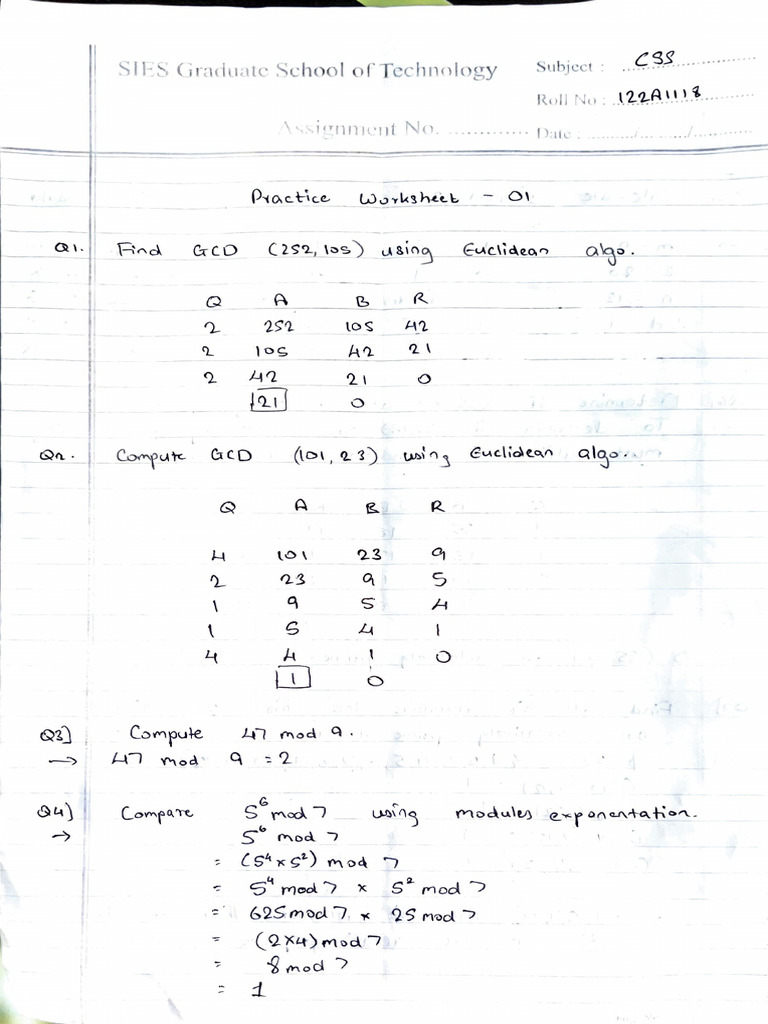 SIES Graduate School of Technology
Subject : CSS
Roll No : 122A1118
Assignment No. ..............
Date : ........../........../..........
Practice Worksheet - 01
Q1. Find GCD (252, 105) using Euclidean algo.
Q A B R
2 252 105 42
2 105 42 21
2 42 21 0
21 0
Q2. Compute GCD (101, 23) using Euclidean algo.
Q A B R
4 101 23 9
2 23 9 5
1 9 5 4
1 5 4 1
4 4 1 0
1 0
Q3] Compute 47 mod 9.
→ 47 mod 9 = 2
Q4] Compare 5⁶ mod 7 using modules exponentation.
→ 5⁶ mod 7
= (5⁴ x 5²) mod 7
= 5⁴ mod 7 x 5² mod 7
= 625 mod 7 x 25 mod 7
= (2x4) mod 7
= 8 mod 7
= 1